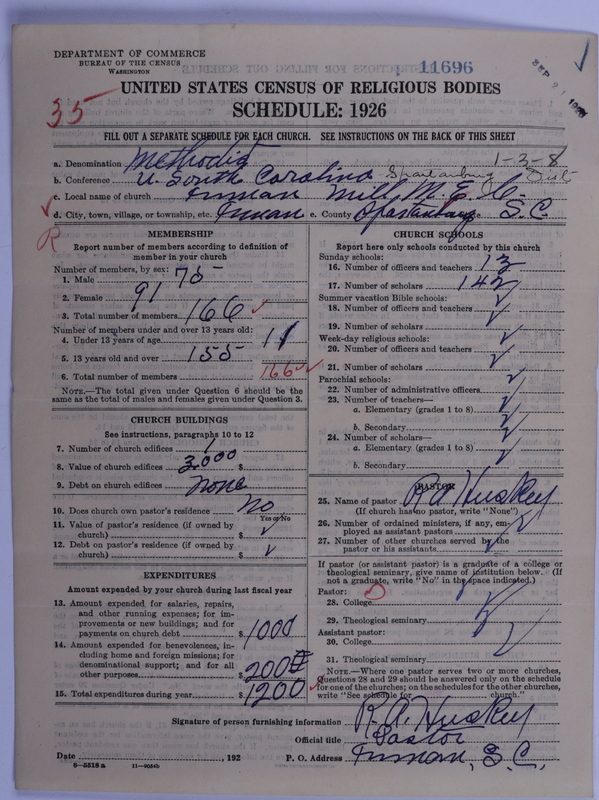 DEPARTMENT OF COMMERCE
BUREAU OF THE CENSUS
WASHINGTON
11696
35
UNITED STATES CENSUS OF RELIGIOUS BODIES
SCHEDULE: 1926
FILL OUT A SEPARATE SCHEDULE FOR EACH CHURCH. SEE INSTRUCTIONS ON THE BACK OF THIS SHEET
1-3-8
a. Denomination Methodist
b. Conference U. South Carolina Spartanburg Dist
c. Local name of church Inman Mill, M. E. C.
d. City, town, village, or township, etc. Inman e. County Spartanburg S.C.
R
MEMBERSHIP
Report number of members according to definition of
member in your church
Number of members, by sex:
1. Male 75
2. Female 91
3. Total number of members 166
Number of members under and over 13 years old:
4. Under 13 years of age 11
5. 13 years old and over 155
6. Total number of members 166
NOTE.—The total given under Question 6 should be the
same as the total of males and females given under Question 3.
CHURCH BUILDINGS
See instructions, paragraphs 10 to 12
7. Number of church edifices 1
8. Value of church edifices $ 3,000
9. Debt on church edifices $ none
10. Does church own pastor's residence no
Yes or No
11. Value of pastor's residence (if owned by
church) $
12. Debt on pastor's residence (if owned by
church) $
EXPENDITURES
Amount expended by your church during last fiscal year
13. Amount expended for salaries, repairs,
and other running expenses; for im-
provements or new buildings; and for
payments on church debt $ 1000
14. Amount expended for benevolences, in-
cluding home and foreign missions; for
denominational support; and for all
other purposes $ 200
15. Total expenditures during year $ 1200
CHURCH SCHOOLS
Report here only schools conducted by this church
Sunday schools:
16. Number of officers and teachers 13
17. Number of scholars 142
Summer vacation Bible schools:
18. Number of officers and teachers
19. Number of scholars
Week-day religious schools:
20. Number of officers and teachers
21. Number of scholars
Parochial schools:
22. Number of administrative officers
23. Number of teachers—
a. Elementary (grades 1 to 8)
b. Secondary
24. Number of scholars—
a. Elementary (grades 1 to 8)
b. Secondary
PASTOR
25. Name of pastor R A Huskey
(If church has no pastor, write "None")
26. Number of ordained ministers, if any, em-
ployed as assistant pastors
27. Number of other churches served by the
pastor or his assistants
If pastor (or assistant pastor) is a graduate of a college or
theological seminary, give name of institution below. (If
not a graduate, write "No" in the space indicated.)
Pastor:
28. College
29. Theological seminary
Assistant pastor:
30. College
31. Theological seminary
NOTE.—Where one pastor serves two or more churches,
Questions 28 and 29 should be answered only on the schedule
for one of the churches; on the schedules for the other churches,
write "See schedule for church."
Signature of person furnishing information R. A. Huskey
Official title Pastor
Date , 192 P. O. Address Inman, S.C.
8-5518 a 11-9054b